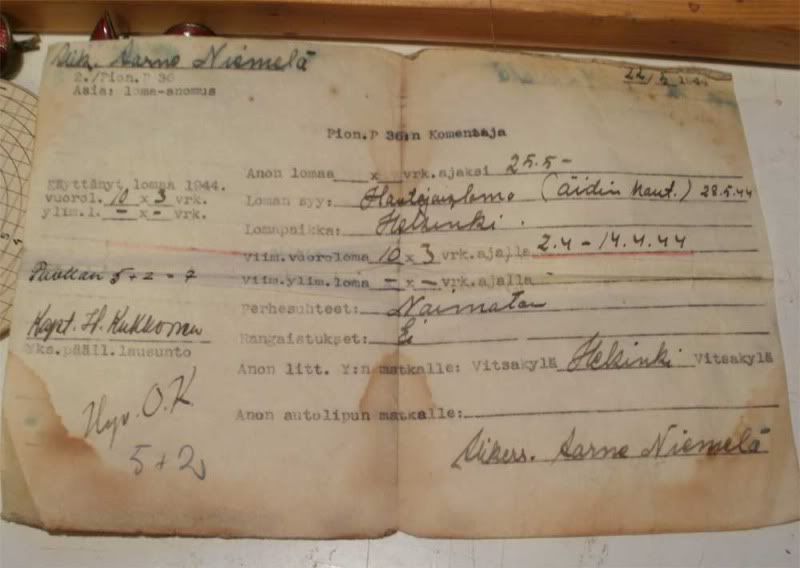 Alik. Aarne Niemelä
2./Pion.P 36
Asia: loma-anomus
22/5 1944
Pion.P 36:n Komentaja
Käyttänyt lomaa 1944.
vuorol. 10 x 3 vrk.
ylim.l. - x - vrk.
Puollan 5+2 = 7
Kapt. H. Kukkonen
Yks.pääll.lausunto
Hyv. O.K.
5+2
Anon lomaa x vrk.ajaksi 25.5 -
Loman syy: Hautajaisloma (äidin haut.) 28.5.44
Lomapaikka: Helsinki.
Viim.vuoroloma 10 x 3 vrk.ajalla 2.4 - 14.4.44
Viim.ylim.loma - x - vrk.ajalla
Perhesuhteet: Naimaton
Rangaistukset: Ei
Anon litt. Y:n matkalle: Vitsakylä Helsinki Vitsakylä
Anon autolipun matkalle:
Alikers. Aarne Niemelä